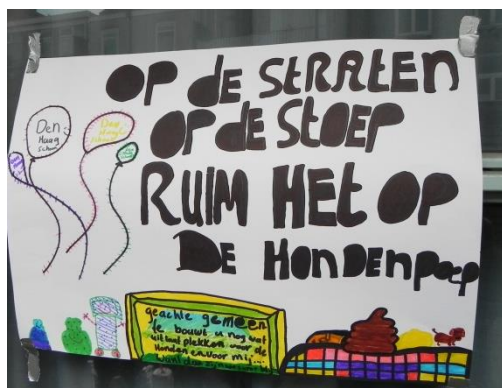 OP de STRATEN
OP de StOEP
RUIM HEt OP
DE HONDENpoep
Den
Haag
schoon
geachte gemeen
te bouwt u nog wat
uitlaat plekken voor de
Honden en voor mij...